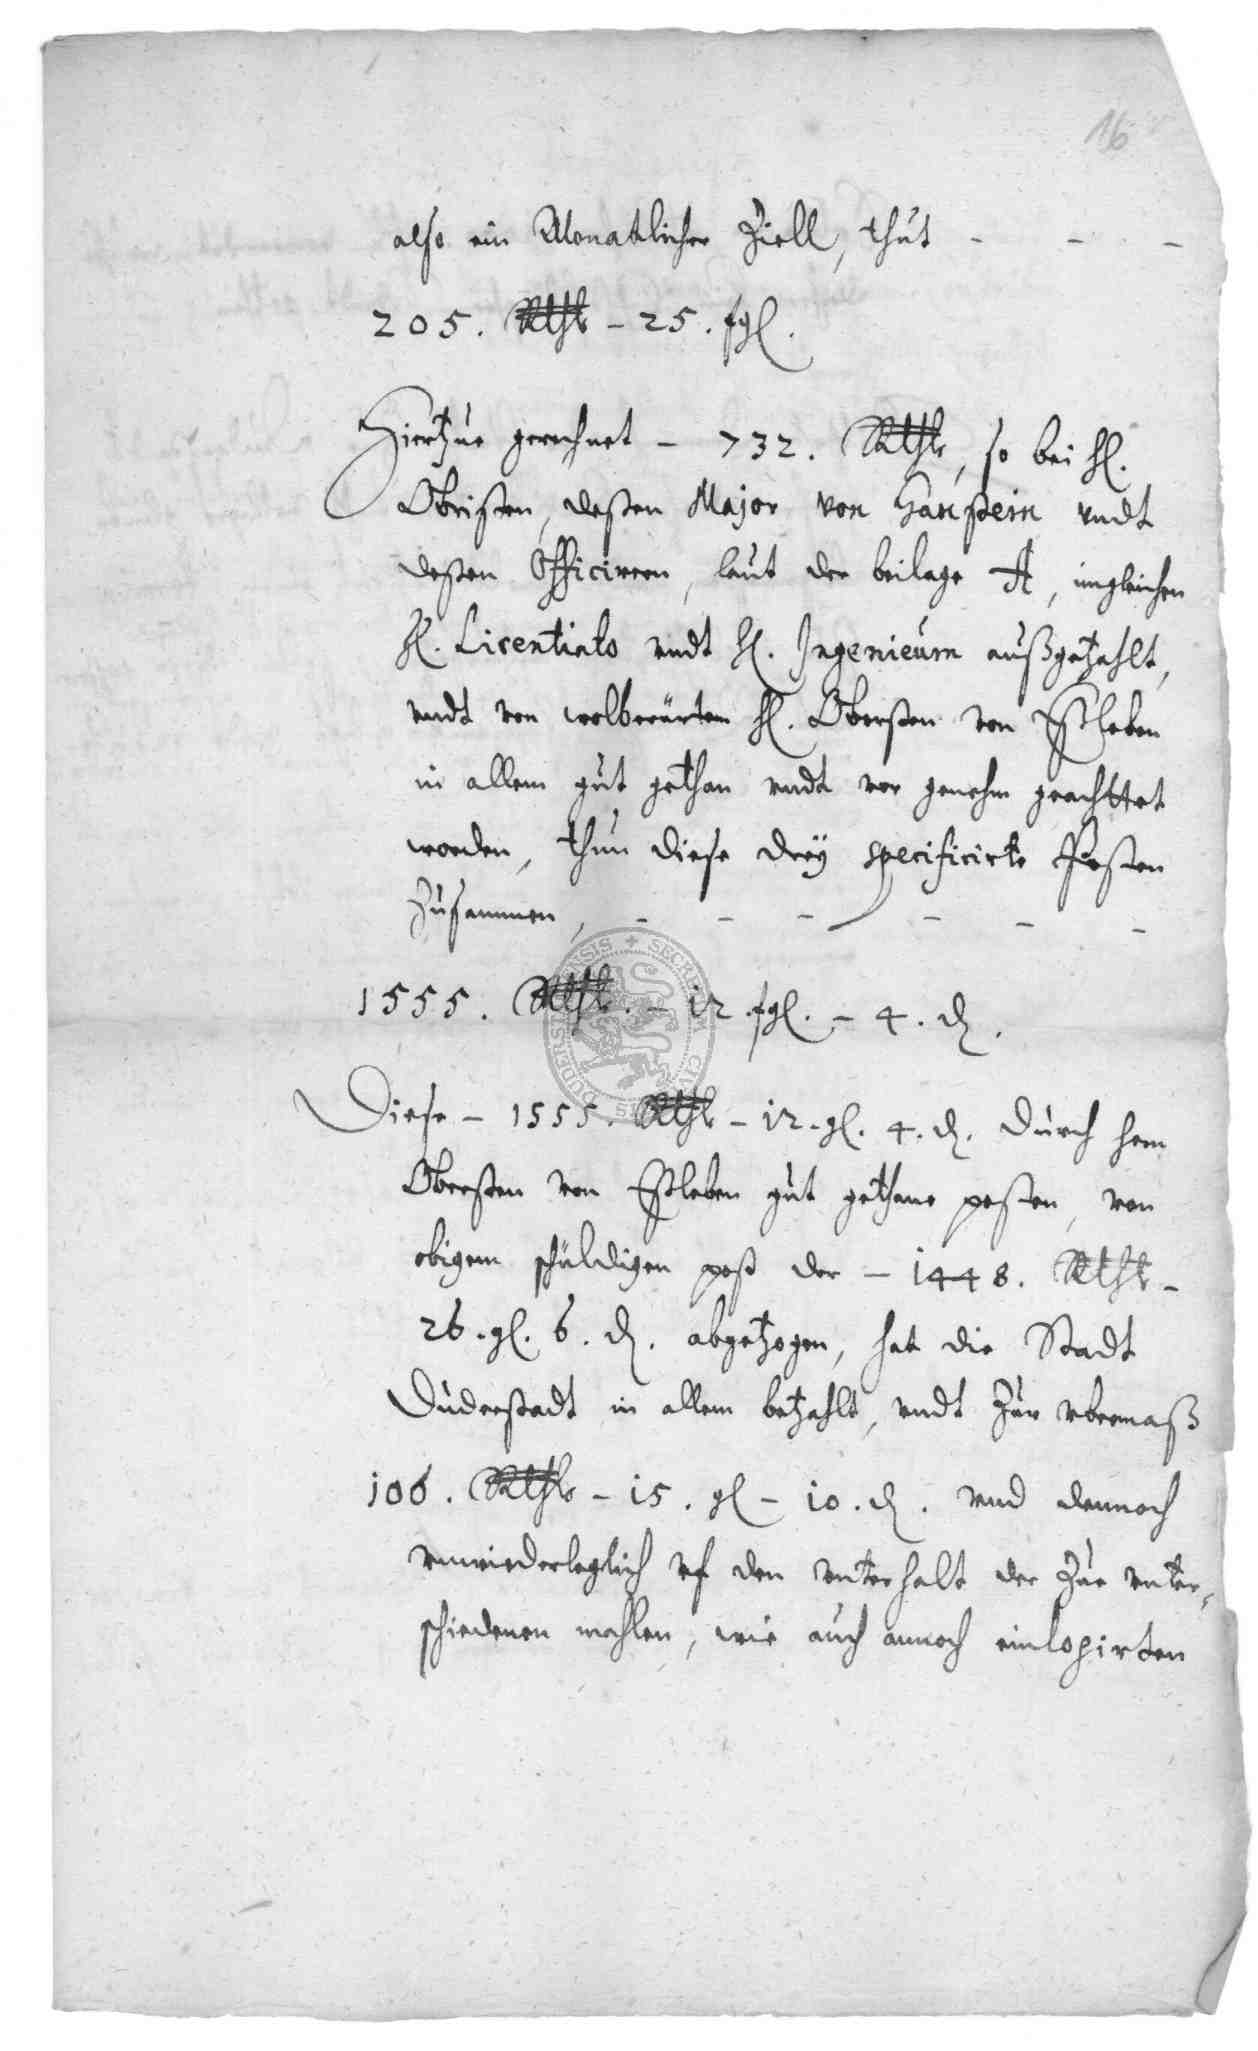 16
also ein Monatlicher Ziell, thut - - -
205. Rthlr - 25. fgl.
Hiertzue gerechnet - 732. Rthlr, so bei H.
Obristen, deßen Major von Hanstein vndt
deßen Officirern, laut der beilage A, imgleichen
H. Licentiato vndt H. Ingenieurn außgetzahlt,
vndt von wolberürtem H. Obersten von Eßleben
in allem gut gethan vndt vor genehm geachttet
worden, thun diese dreÿ specificirte Posten
Zusammen, - - - - - -
1555. Rthlr. - 12 fgl. - 4. d.
Diese - 1555. Rthlr - 12. gl. 4. d. durch hern
Obersten von Eßleben gut gethane posten, von
obigem schuldigen post der - 1448. Rthlr -
26. gl. 6. d. abgetzogen, hat die Stadt
Duderstadt in allem betzahlt, vndt Zur vbermaß
106. Rthlr - 15. gl - 10. d. vnd dennoch
vnwiederleglich vf den vnterhalt der Zue vnter-
schiedenen mahlen, wie auch annoch einlogirten
SECRETUM CIVIUM DUDERSTADENSIS